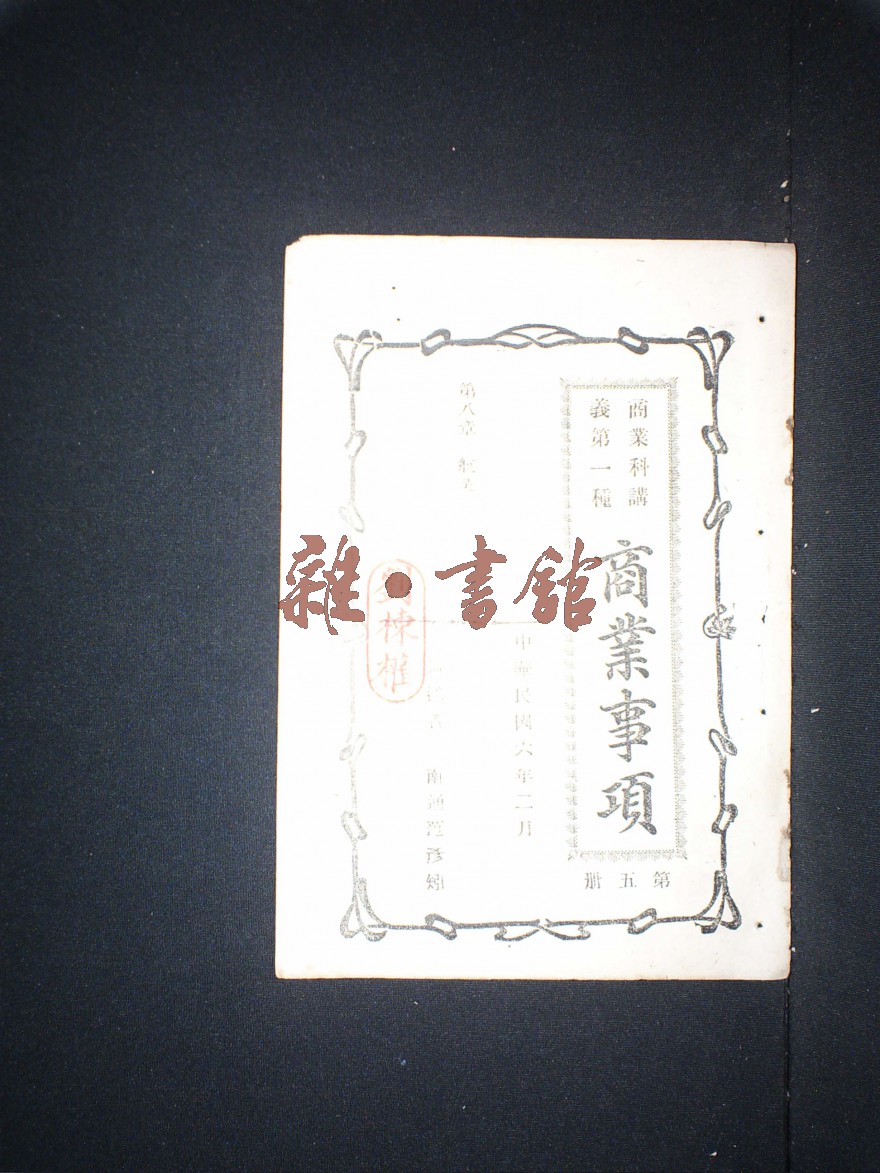 商業科講
義第一種
商業事項
第五册
中華民國六年二月
第八章
南通
雜·書館
棟權